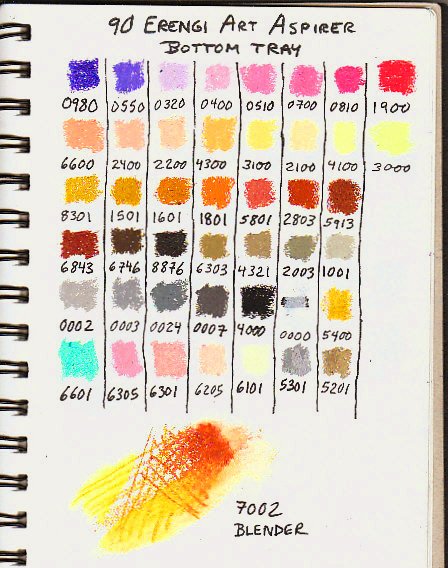 90 ERENGI ART ASPIRER
BOTTOM TRAY
0980 0550 0320 0400 0510 0700 0810 1900
6600 2400 2200 4300 3100 2100 4100 3000
8301 1501 1601 1801 5801 2803 5913
6843 6746 8876 6303 4321 2003 1001
0002 0003 0024 0007 4000 0000 5400
6601 6305 6301 6205 6101 5301 5201
7002
BLENDER